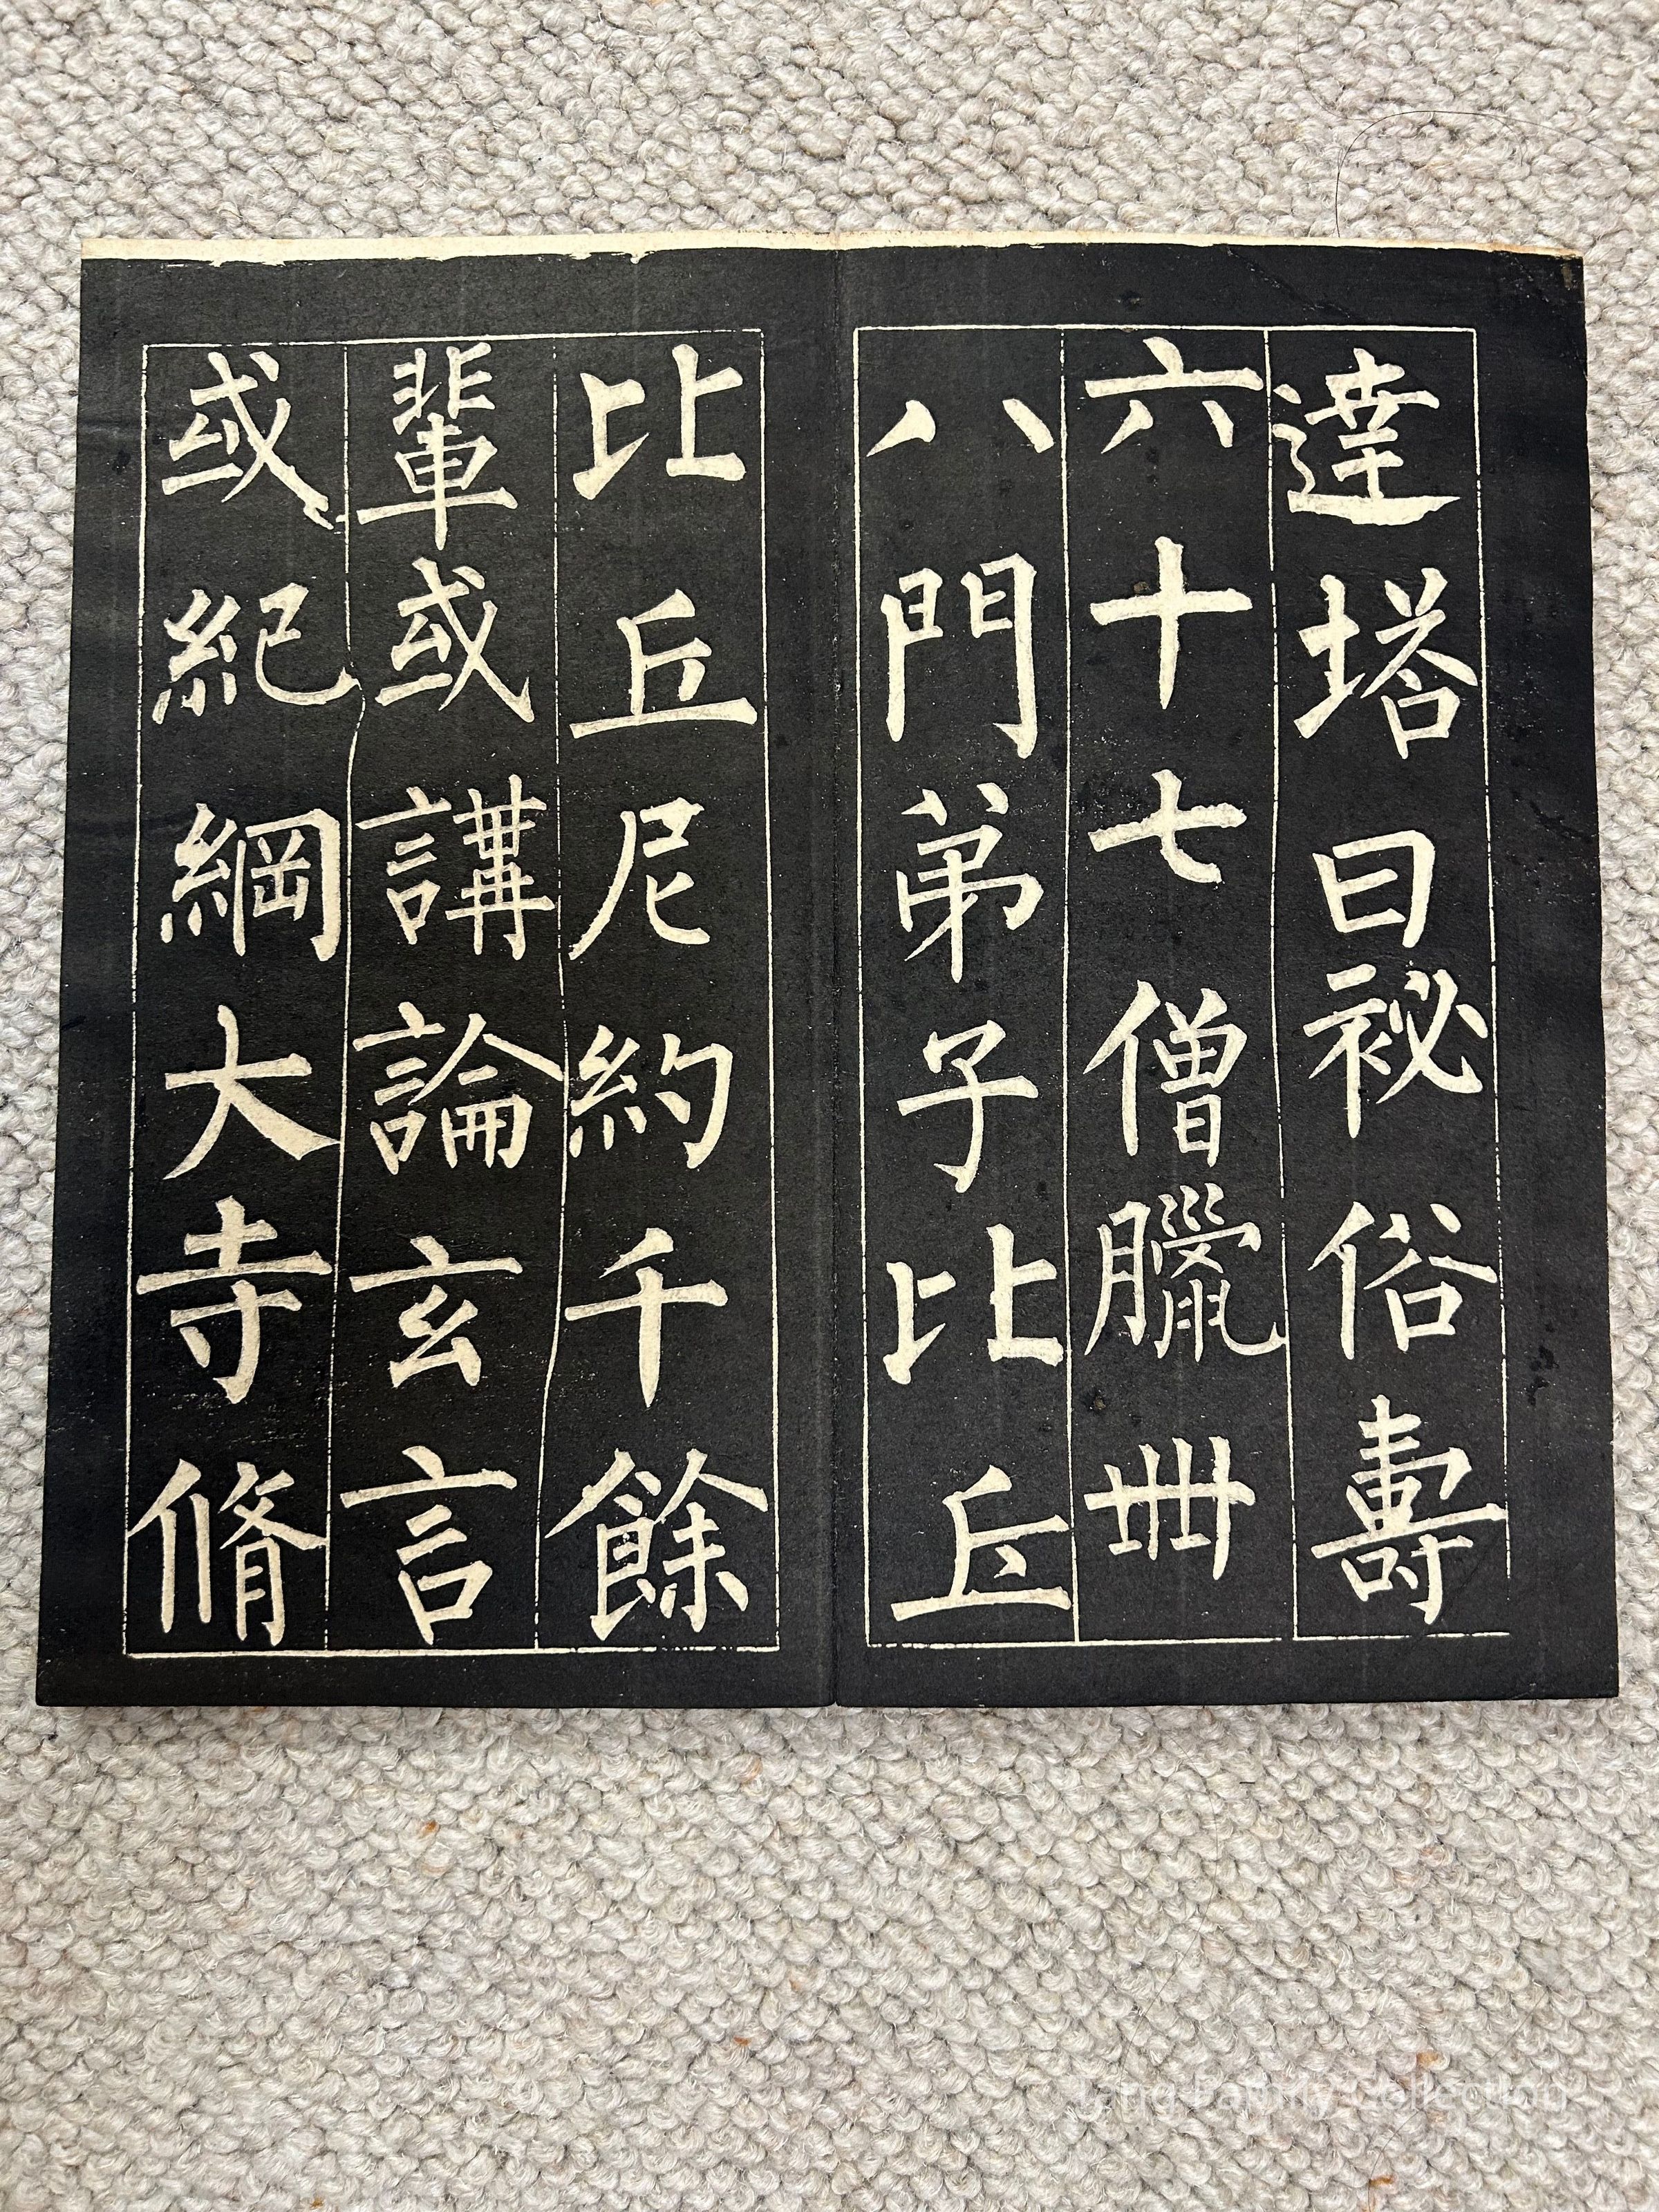 達塔曰祕俗壽
六十七僧臘卌
八門弟子比丘
比丘尼約千餘
輩或講論玄言
或紀綱大寺脩
Jiang Family Collection